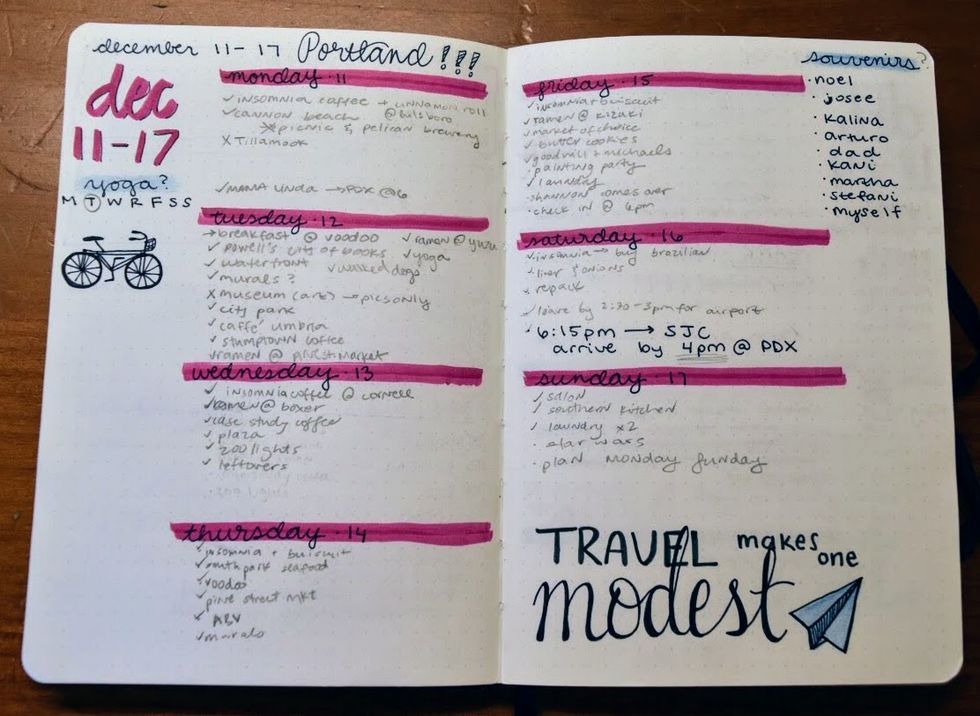 december 11-17 Portland!!!
dec
11-17
yoga?
M T W R F S S
monday · 11
✓ insomnia coffee + cinnamon roll
✓ cannon beach @ hillsboro
* picnic & pelican brewery
x Tillamook
✓ MAMA LINDA → PDX @6
tuesday · 12
→ breakfast @ voodoo ✓ ramen @ yuzu
✓ powell's city of books ✓ yoga
✓ waterfront ✓ walked dogs
✓ murals?
x museum (art) → pics only
✓ city park
✓ caffé umbria
✓ stumptown coffee
✓ ramen @ pinest market
wednesday · 13
✓ insomnia coffee @ cornell
✓ ramen @ boxer
✓ case study coffee
✓ plaza
✓ zoo lights
✓ leftovers
· zoo lights
thursday · 14
✓ insomnia + buiscuit
✓ south park seafood
✓ voodoo
✓ pine street mkt
✓ ABV
✓ murals
friday · 15
✓ insomnia + buiscuit
✓ ramen @ kizaki
✓ market of choice
✓ butter cookies
✓ goodwill + michaels
· painting party
✓ laundry
· shannon comes over
· check in @ 6pm
saturday · 16
✓ insomnia → buy brazilian
✓ liver & onions
x repack
✓ leave by 2:30-3pm for airport
· 6:15pm → SJC
arrive by 4pm @ PDX
sunday · 17
✓ salon
✓ southern kitchen
✓ laundry x2
· star wars
· plan monday funday
souvenirs?
· noel
josee
· kalina
· arturo
· dad
· kani
· martha
· stefani
· myself
TRAVEL makes one
modest